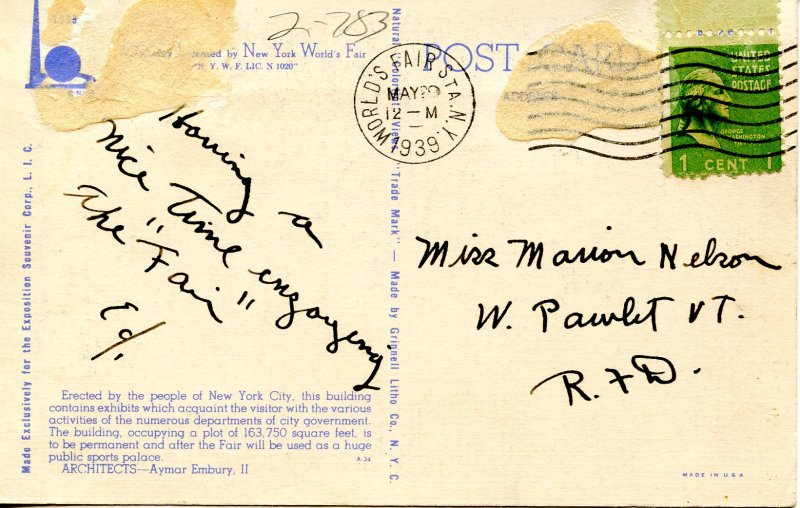 2-783
nsed by New York World's Fair
"N. Y. W. F. LIC. N 1020"
POST CARD
WORLD'S FAIR STA. N.Y.
MAY
12-M
1939
UNITED
STATES
POSTAGE
GEORGE
WASHINGTON
1 CENT 1
Having a
nice time engoyenig
The "Fair"
Ed/.
Miss Marion Nelson
W. Pawlet VT.
R.F.D.
Made Exclusively for the Exposition Souvenir Corp., L. I. C.
Erected by the people of New York City, this building
contains exhibits which acquaint the visitor with the various
activities of the numerous departments of city government.
The building, occupying a plot of 163,750 square feet, is
to be permanent and after the Fair will be used as a huge
public sports palace.
ARCHITECTS—Aymar Embury, II
A-34
"Trade Mark" — Made by Grinnell Litho Co., N. Y. C.
MADE IN USA